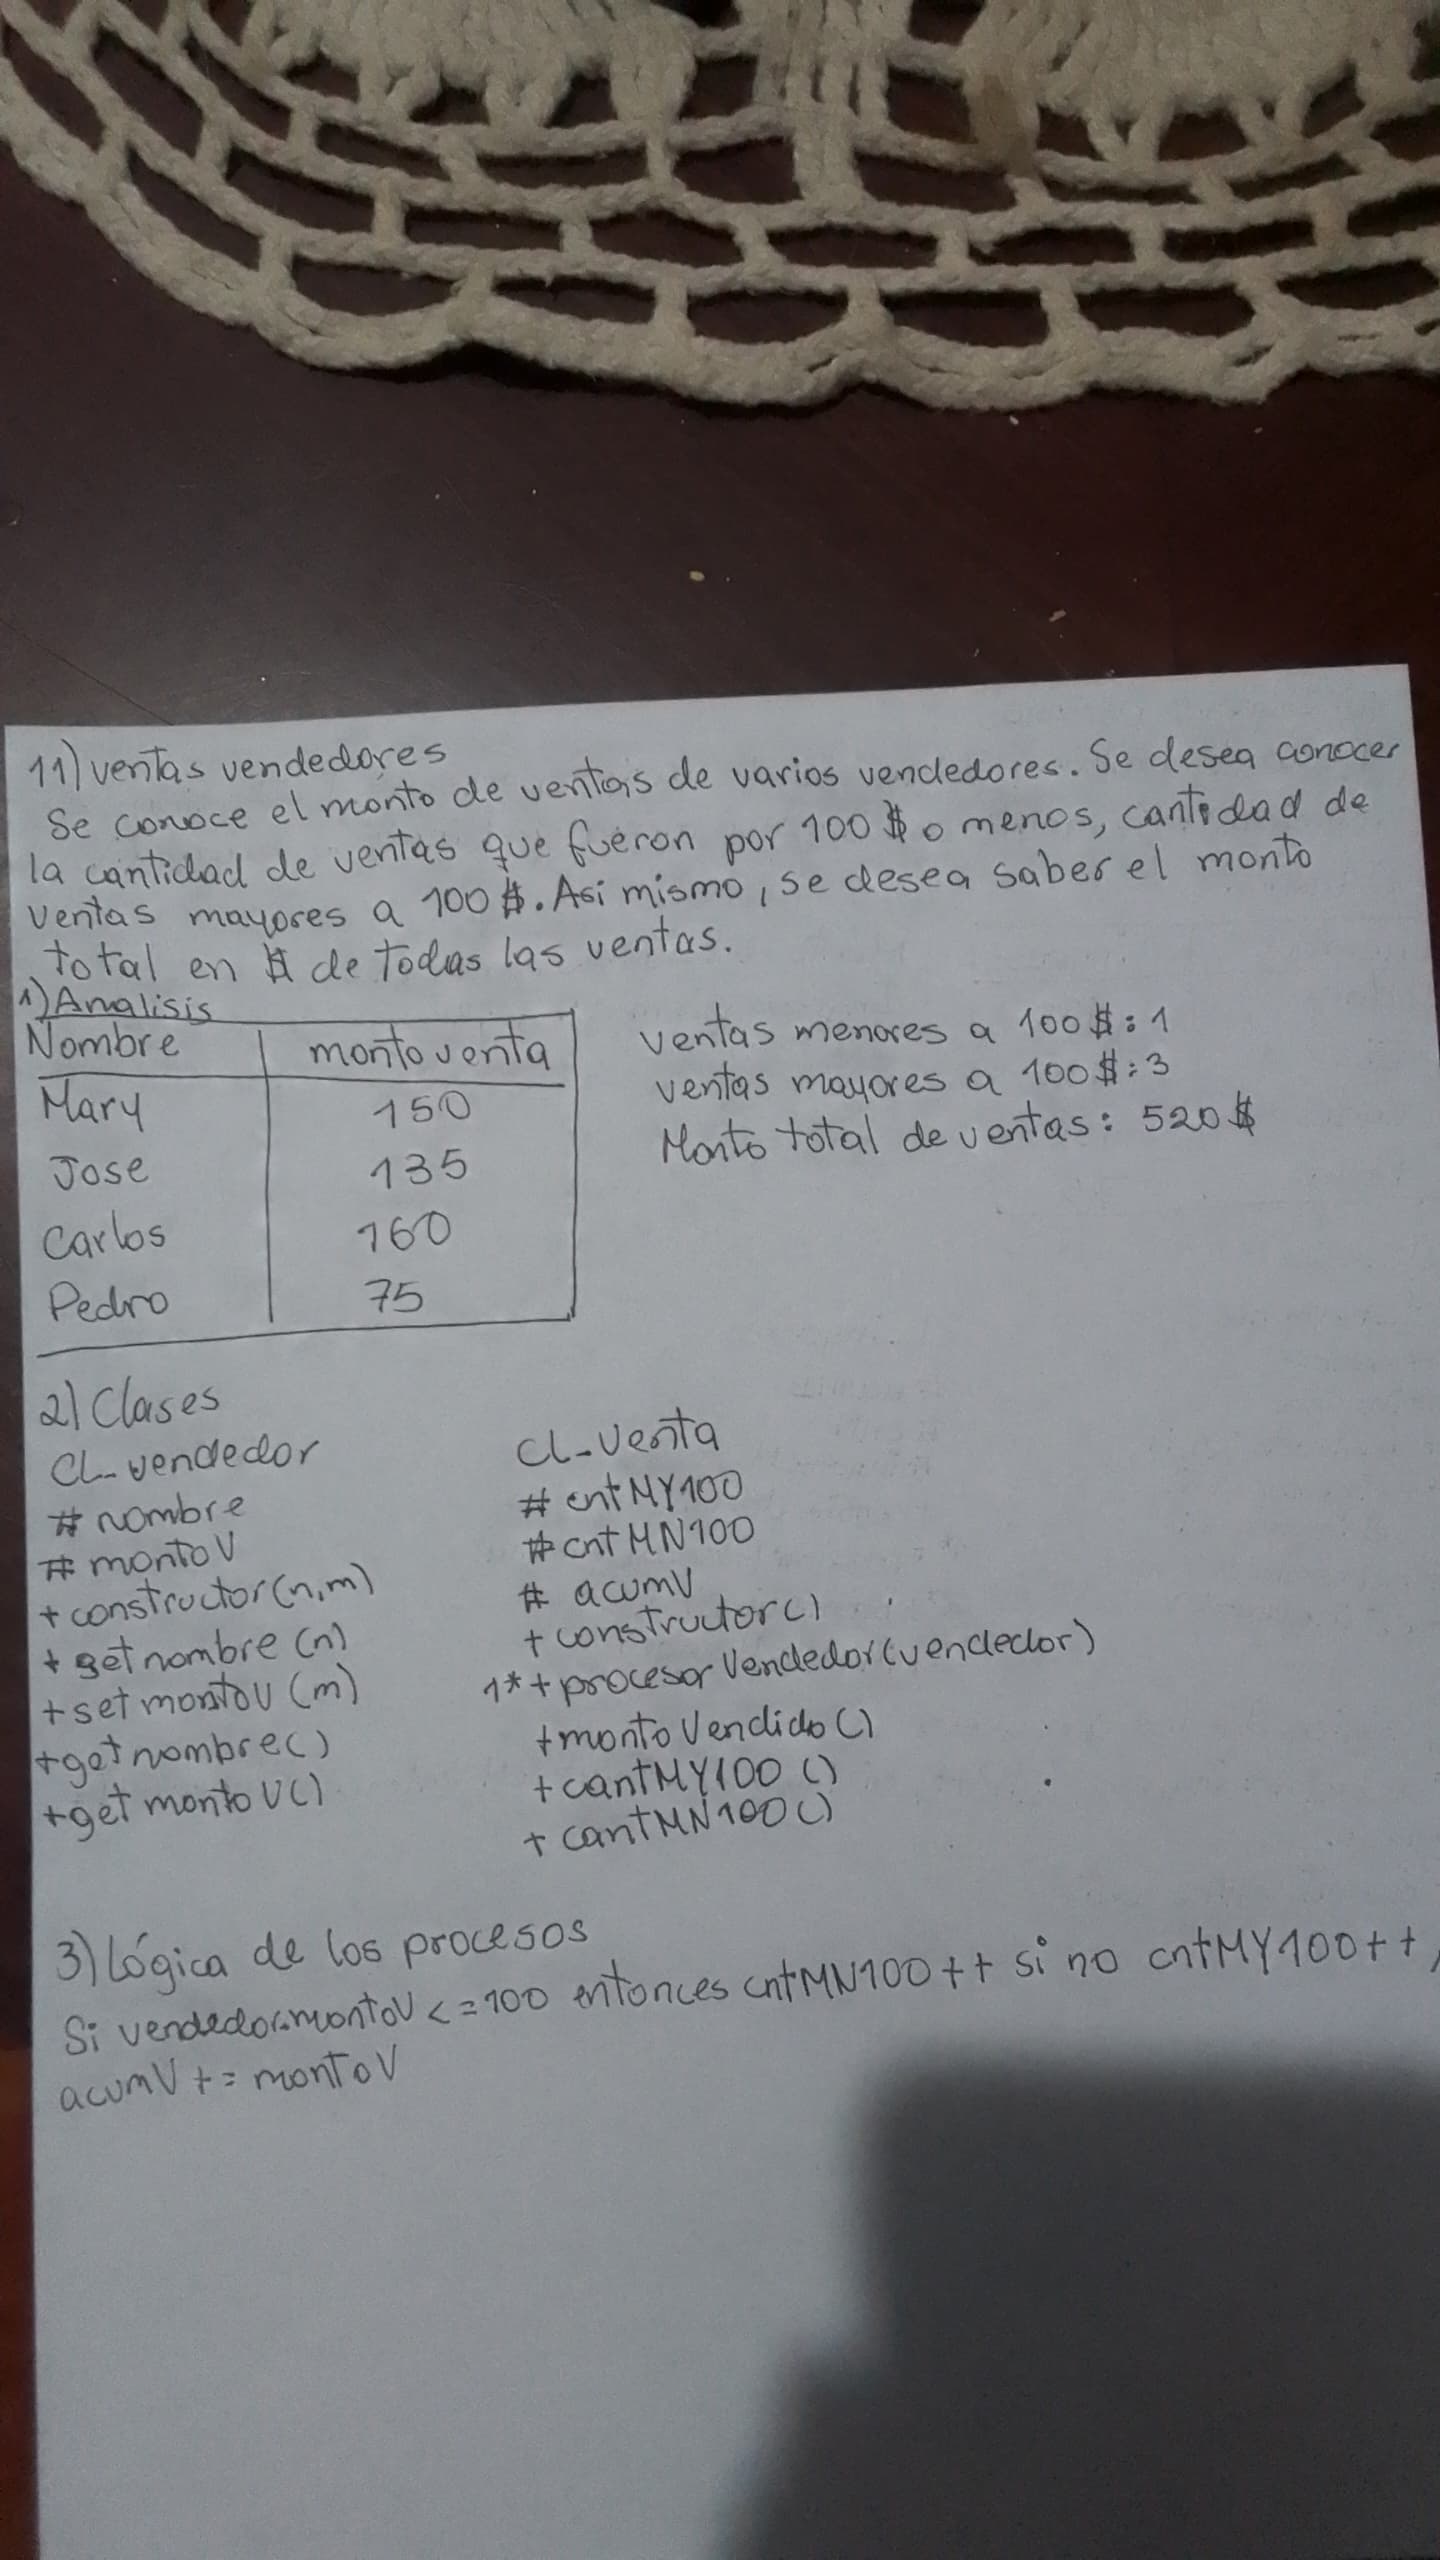 11) ventas vendedores
Se conoce el monto de ventas de varios vendedores. Se desea conocer
la cantidad de ventas que fueron por 100 $ o menos, cantidad de
ventas mayores a 100 $. Asi mismo, se desea saber el monto
total en $ de todas las ventas.
1) Analisis
Nombre monto venta
Mary 150
Jose 135
Carlos 160
Pedro 75
ventas menores a 100 $: 1
ventas mayores a 100 $: 3
Monto total de ventas: 520 $
2) Clases
CL_vendedor
# nombre
# montoV
+ constructor(n,m)
+ set nombre (n)
+ set montoV (m)
+ get nombre ()
+ get montoV ()
CL_Venta
# cntMY100
# cntMN100
# acumV
+ constructor ()
1* + procesar Vendedor (vendedor)
+ monto Vendido ()
+ cantMY100 ()
+ cantMN100 ()
3) Lógica de los procesos
Si vendedor.montoV <= 100 entonces cntMN100 ++ si no cntMY100 ++,
acumV += montoV